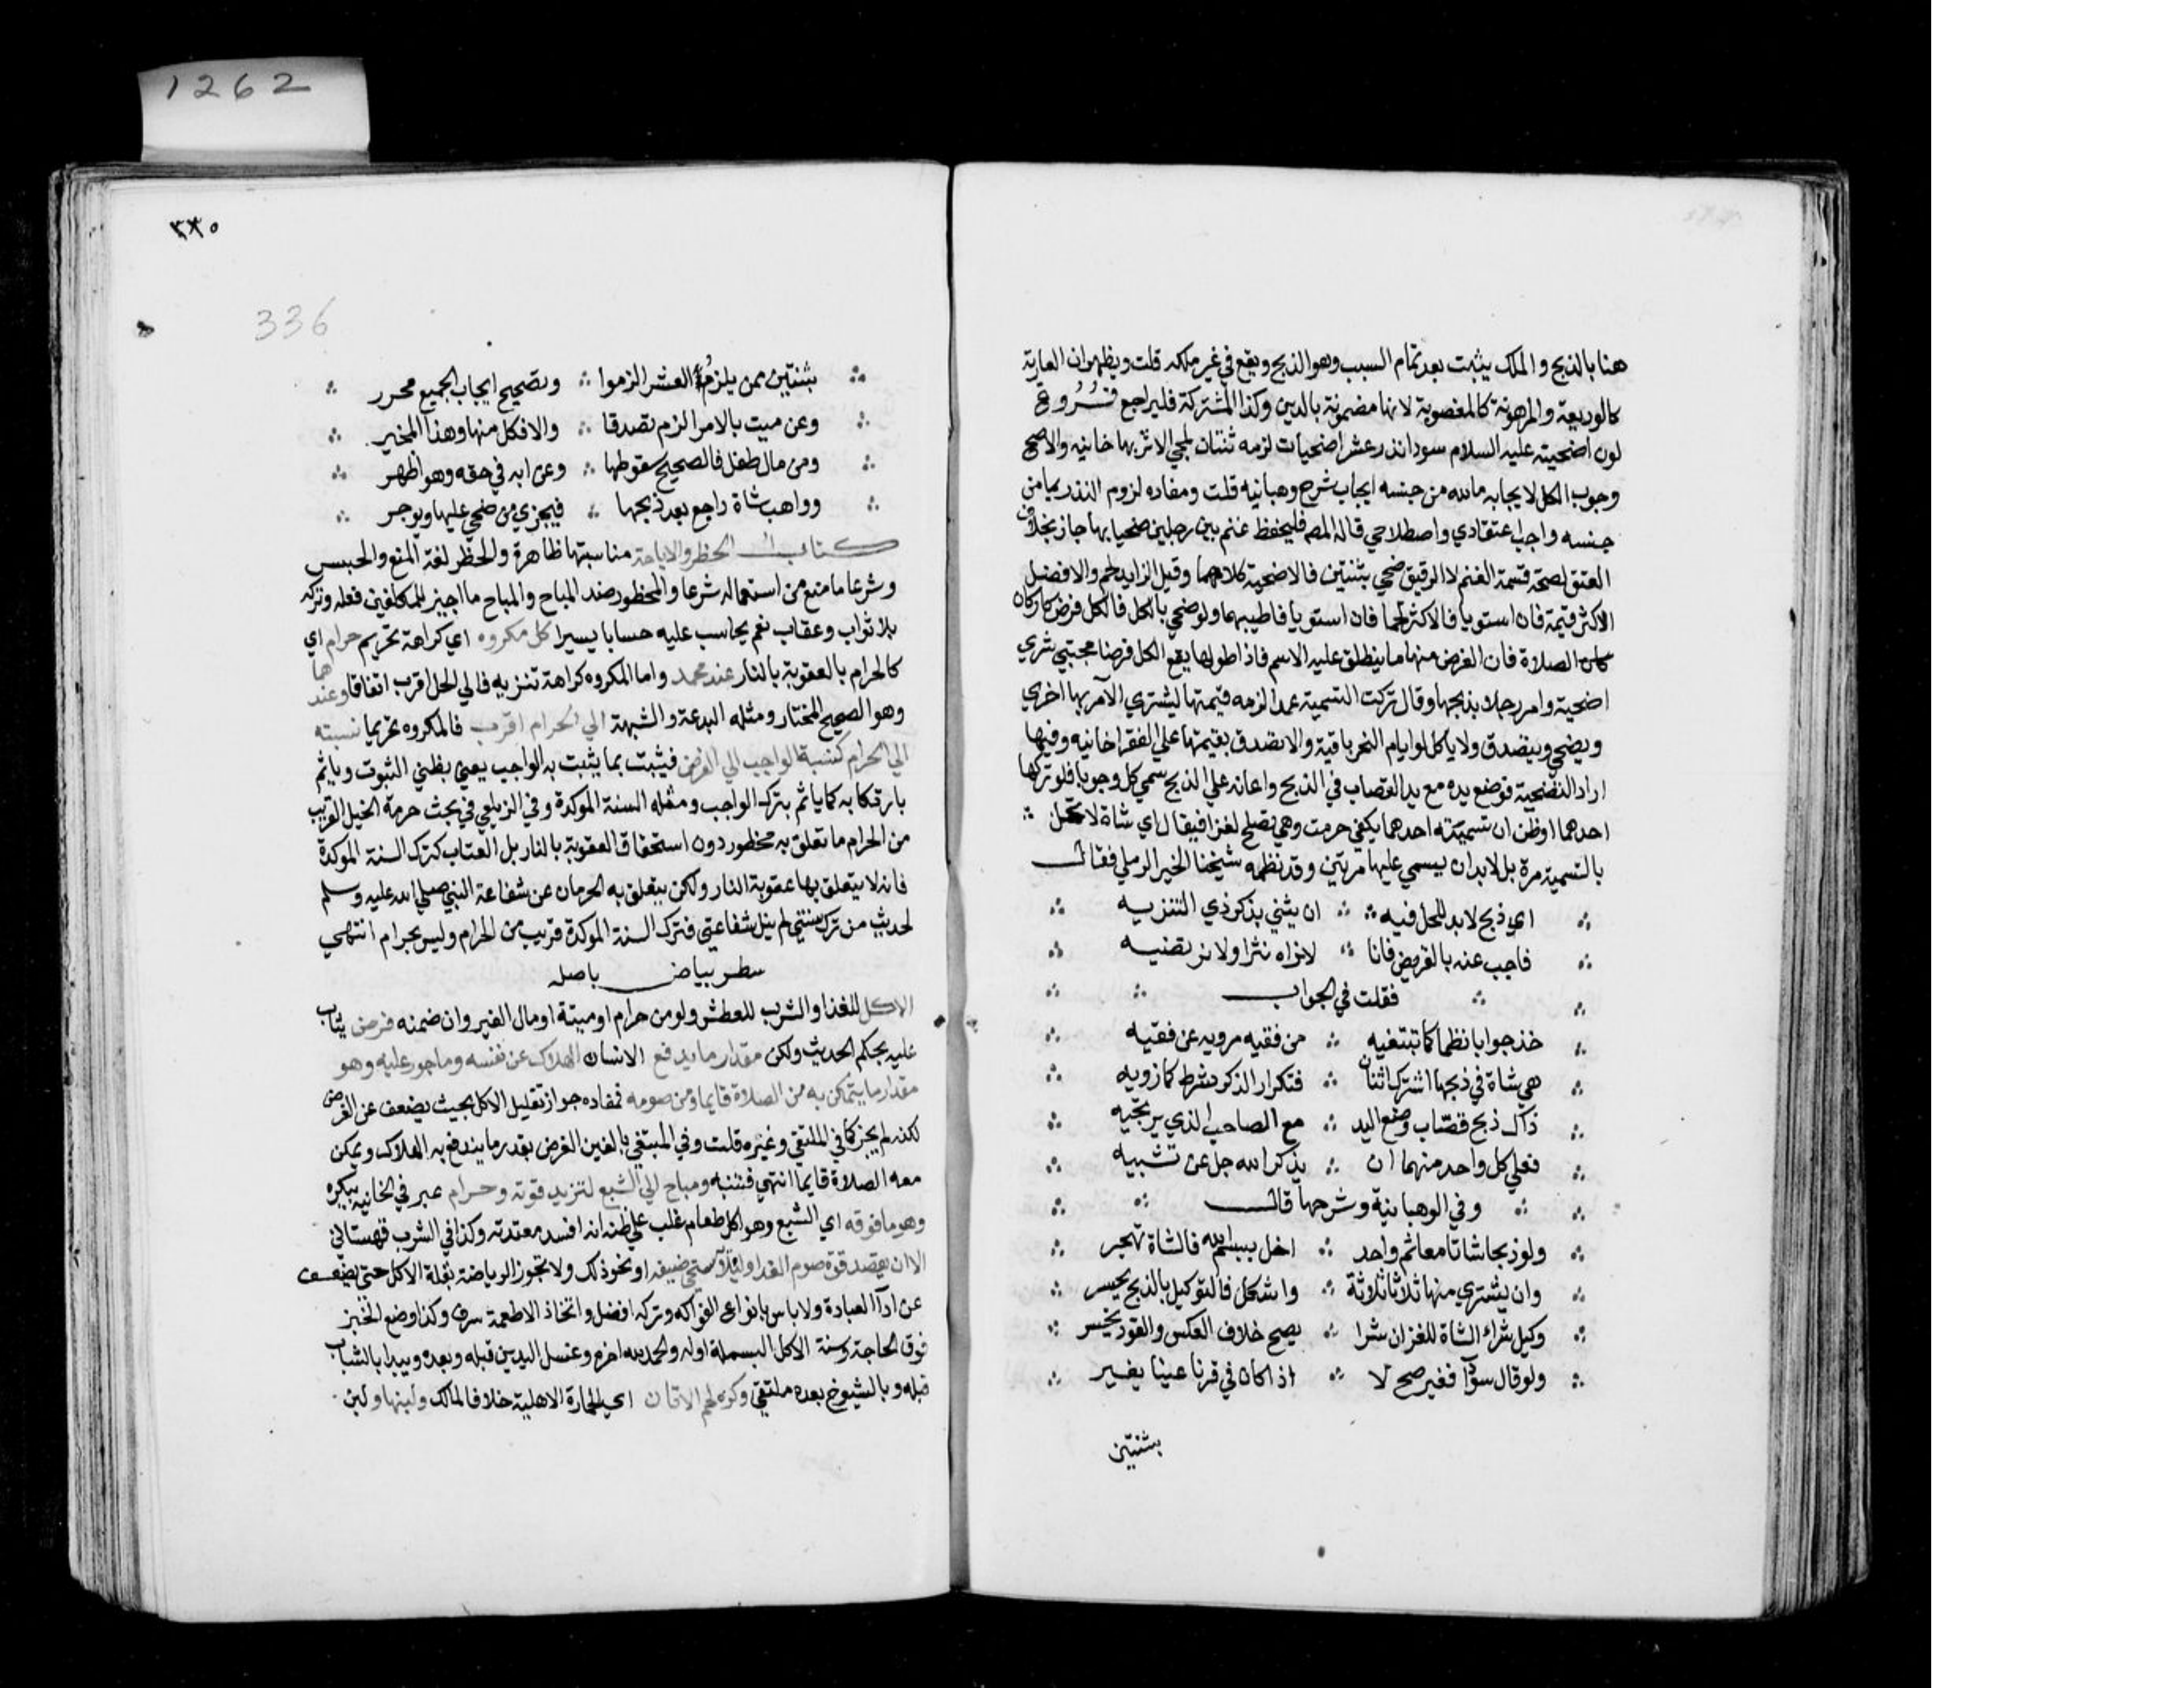 1262
هنا بالذبح والملك يثبت بعد تمام السبب وهو الذبح ويقع في غير ملكه قلت ويظهر ان العارية
كالوديعة والمرهونة كالمغصوبة لانها مضمونة بالدين وكذا المشتركة فليراجع فروع
لون اضحيته عليه السلام سودا نذر عشر اضحيات لزمه ثنتان لمجي الاثر بها خانيه والاصح
وجوب الكل لايجابه ما لله من جنسه ايجاب شرح وهبانيه قلت ومفاده لزوم النذر بما من
جنسه واجب اعتقادي واصطلاحي قاله المص فليحفظ غنم بين رجلين ضحيا بها جاز بخلاف
العتق لصحة قسمة الغنم لا الرقيق ضحي بثنتين فالاضحية كلاهما وقيل الزايد لحم والافضل
الاكثر قيمة فان استويا فالاكثر لحما فان استويا فاطيبهما ولو ضحي بالكل فالكل فرض كاركان
الصلاة فان الفرض منها ما ينطلق عليه الاسم فاذا طولها يقع الكل فرضا مجتبي شري
اضحية وامر رجلا بذبحها وقال تركت التسمية عمدا لزمه قيمتها ليشتري الآمر بها اخري
ويضحي ويتصدق ولا ياكل لو ايام النحر باقية والا تصدق بقيمتها علي الفقرا خانيه وفيها
اراد التضحية فوضع يده مع يد القصاب في الذبح واعانه علي الذبح سمي كل وجوبا فلو تركها
احدهما او ظن ان تسمية احدهما يكفي حرمت وهي تصلح لغزا فيقال اي شاة لا تحل
بالتسمية مرة بل لابد ان يسمي عليها مرتين وقد نظمه شيخنا الخير الرملي فقال
اي ذبح لابد للحل فيه ∴ ان يثني بذكر ذي التنزيه
فاجب عنه بالقريض فانا ∴ لا نراه نثرا ولا نرتضيه
فقلت في الجواب
خذ جوابا نظما كما تبتغيه ∴ من فقيه مرويه عن فقيه
هي شاة في ذبحها اشترك اثنان ∴ فتكرار الذكر شرط كما نرويه
ذاك ذبح قصاب وضع اليد ∴ مع الصاحب الذي يرتجيه
فعلي كل واحد منهما ان ∴ يذكر الله جل عن تشبيه
وفي الوهبانية وشرحها قال
ولو ذبحا شاتا معا ثم واحد ∴ اخل ببسم الله فالشاة تهجر
وان يشتري منها ثلاثا ثلاثة ∴ واشكل فالتوكيل بالذبح يحسر
وكيل شراء الشاة للغزان شرا ∴ يصح خلاف العكس والقود يخسر
ولو قال سودا فغير صح لا ∴ اذا كان في قرنا عينا يغير
بثنتين
٣٣٥
336
بثنتين ممن يلزم العشر الزموا ∴ وتصحيح ايجاب الجميع محرر
وعن ميت بالامر الزم تصدقا ∴ والا فكل منها وهذا المخير
ومن مال طفل فالصحيح سقوطها ∴ وعن ابه في حقه وهو اظهر
وواهب شاة راجع بعد ذبحها ∴ فيجزي من ضحي عليها ويوجر
كتاب الحظر والاباحة مناسبتها ظاهرة والحظر لغة المنع والحبس
وشرعا ما منع من استعماله شرعا والمحظور ضد المباح والمباح ما اجيز للمكلفين فعله وتركه
بلا ثواب وعقاب نعم يحاسب عليه حسابا يسيرا كل مكروه اي كراهة تحريم حرام اي
كالحرام بالعقوبة بالنار عند محمد واما المكروه كراهة تنزيه فالي الحل اقرب اتفاقا وعندهما
وهو الصحيح المختار ومثله البدعة والشبهة الي الحرام اقرب فالمكروه تحريما نسبته
الي الحرام كنسبة الواجب الي الفرض فيثبت بما يثبت به الواجب يعني بظني الثبوت وياثم
بارتكابه كما ياثم بترك الواجب ومثله السنة الموكدة وفي الزيلعي في بحث حرمة الخيل القريب
من الحرام ما تعلق به محظور دون استحقاق العقوبة بالنار بل العتاب كترك السنة الموكدة
فانه لا يتعلق بها عقوبة النار ولكن يتعلق به الحرمان عن شفاعة النبي صلي الله عليه وسلم
لحديث من ترك سنتي لم ينل شفاعتي فترك السنة الموكدة قريب من الحرام وليس بحرام انتهي
سطر بياض باصله
الاكل للغذا والشرب للعطش ولو من حرام او ميتة او مال الغير وان ضمنه فرض يثاب
عليه بحكم الحديث ولكن مقدار ما يدفع الانسان الهلاك عن نفسه وماجور عليه وهو
مقدار ما يتمكن به من الصلاة قايما ومن صومه فمفاده جواز تقليل الاكل بحيث يضعف عن الفرض
لكنه لم يجز كما في الملتقي وغيره قلت وفي المبتغي بالغين الفرض بقدر ما يندفع به الهلاك ويمكن
معه الصلاة قايما انتهي فتنبه ومباح الي الشبع لتزيد قوته وحرام عبر في الخانيه بيكره
وهو ما فوقه اي الشبع وهو اكل طعام غلب علي ظنه انه افسد معدته وكذا في الشرب قهستاني
الا ان يقصد قوة صوم الغد او ليلا يستحي ضيفه او نحو ذلك ولا تجوز الرياضة بقلة الاكل حتي يضعف
عن ادآ العبادة ولا باس بانواع الفواكه وتركه افضل واتخاذ الاطعمة سرف وكذا وضع الخبز
فوق الحاجة وسنة الاكل البسملة اوله والحمد لله اخره وغسل اليدين قبله وبعده ويبدا بالشباب
قبله وبالشيوخ بعده ملتقي وكره لحم الاتان اي الحمارة الاهلية خلافا لمالك ولبنها ولبن